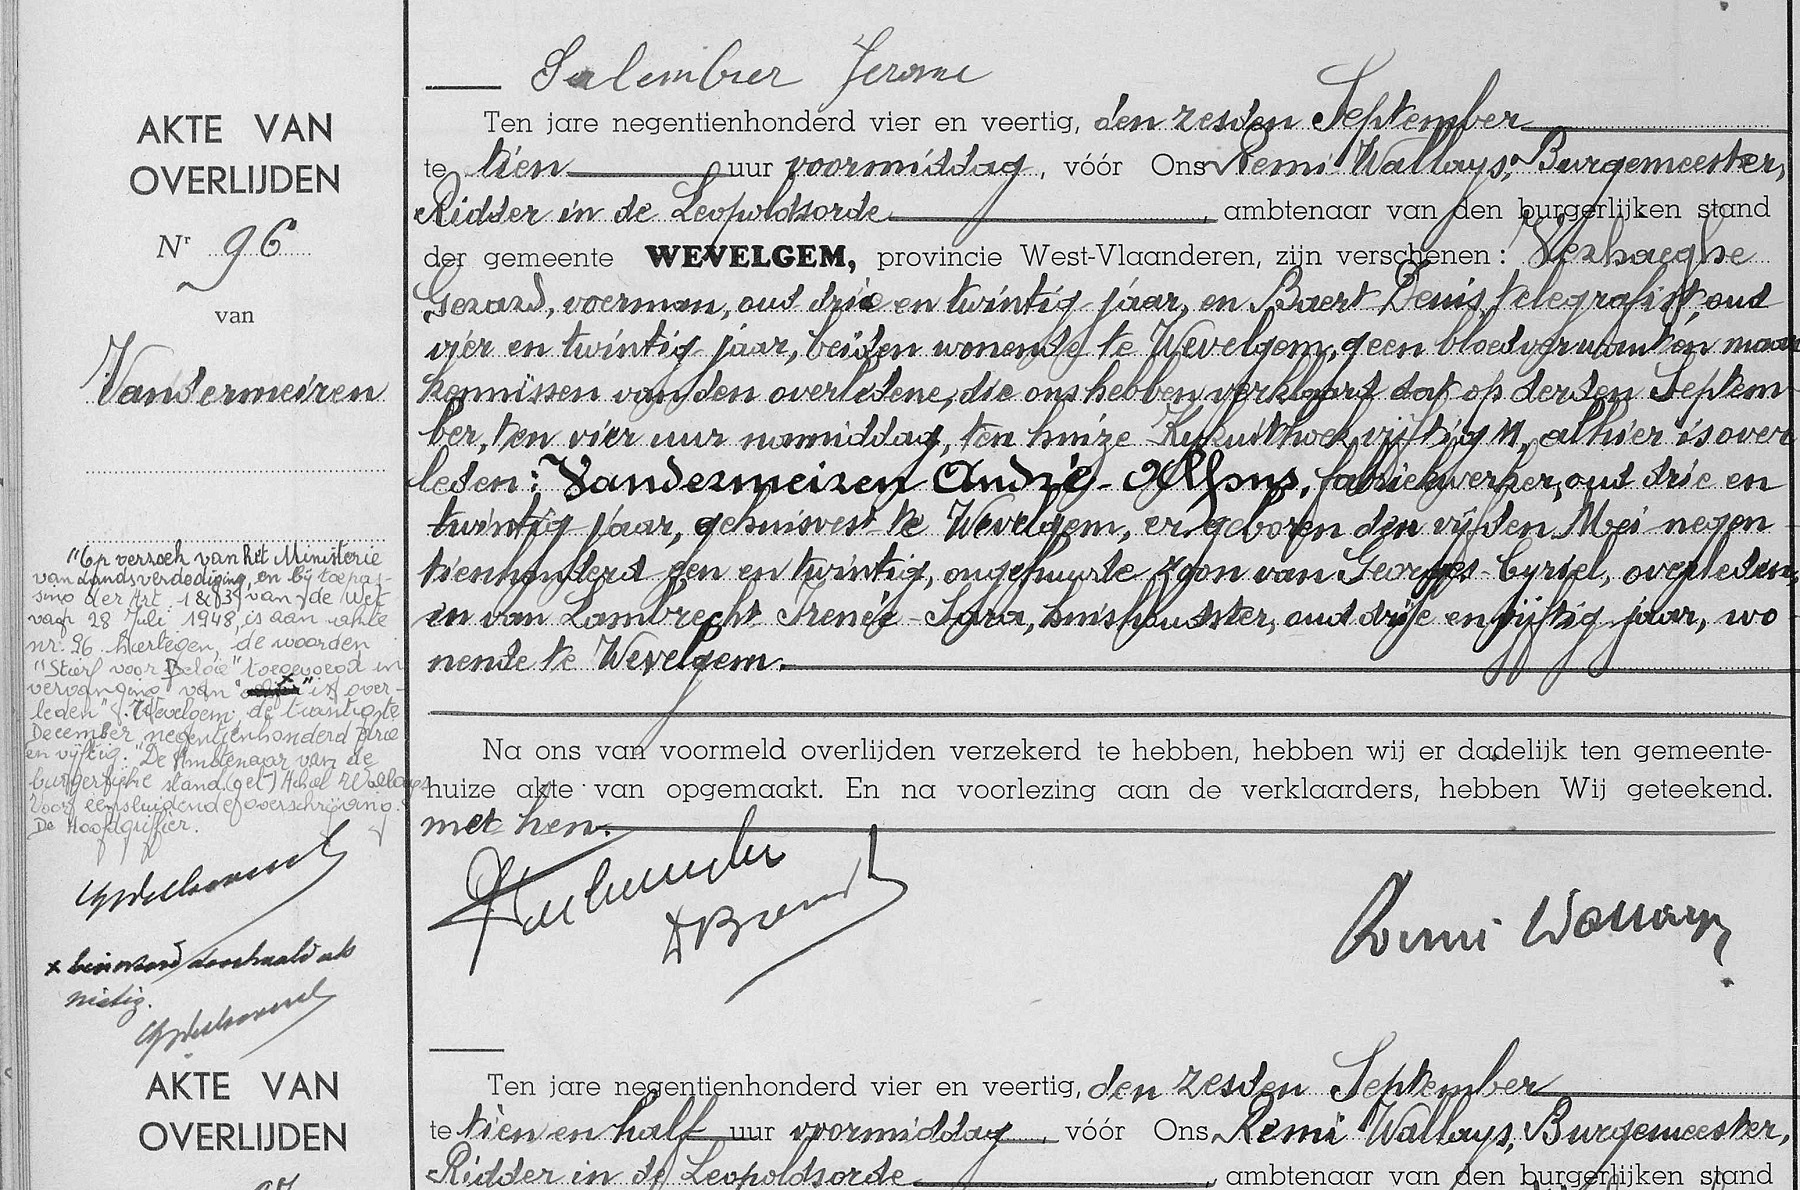 Salembier Jerome
AKTE VAN
OVERLIJDEN
Nr 96
van
Vandermeiren
Ten jare negentienhonderd vier en veertig, den zesden September
te tien uur voormiddag, vóór Ons Remi Wallays, Burgemeester,
Ridder in de Leopoldsorde, ambtenaar van den burgerlijken stand
der gemeente WEVELGEM, provincie West-Vlaanderen, zijn verschenen: Verhaeghe
Gerard, voerman, oud drie en twintig jaar, en Baert Denis, telegrafist, oud
vier en twintig jaar, beiden wonende te Wevelgem, geen bloedverwanten maar
kennissen van den overledene, die ons hebben verklaard dat op derden Septem-
ber, ten vier uur namiddag, ten huize vijftig, alhier is over
leden: Vandermeiren André-Alfons, fabriekwerker, oud drie en
twintig jaar, gehuisvest te Wevelgem, er geboren den vijfden Mei negen-
tienhonderd een en twintig, ongehuwde zoon van Georges-Cyriel, overleden,
en van Lambrecht Irenée-Sara, huishoudster, oud drije en vijftig jaar, wo
nende te Wevelgem.
Na ons van voormeld overlijden verzekerd te hebben, hebben wij er dadelijk ten gemeente-
huize akte van opgemaakt. En na voorlezing aan de verklaarders, hebben Wij geteekend.
met hen.
Remi Wallays
"Op verzoek van het Ministerie
van Landsverdediging, en bij toepas-
sing der Art. 1 & 3 van de Wet
van 28 Juli 1948, is aan akte
nr. 96 hiertegen, de woorden
"Stierf voor België" toegevoegd in
vervanging van "is over-
leden". Wevelgem de twintigste
December negentienhonderd drie
en vijftig. "De Ambtenaar van de
burgerlijke stand (get) Wallays
Voor eensluidende overschrijving.
De Hoofdgriffier.
x doorhaald als
nietig.
AKTE VAN
OVERLIJDEN
Ten jare negentienhonderd vier en veertig, den zesden September
te tien en half uur voormiddag, vóór Ons Remi Wallays, Burgemeester,
Ridder in de Leopoldsorde, ambtenaar van den burgerlijken stand